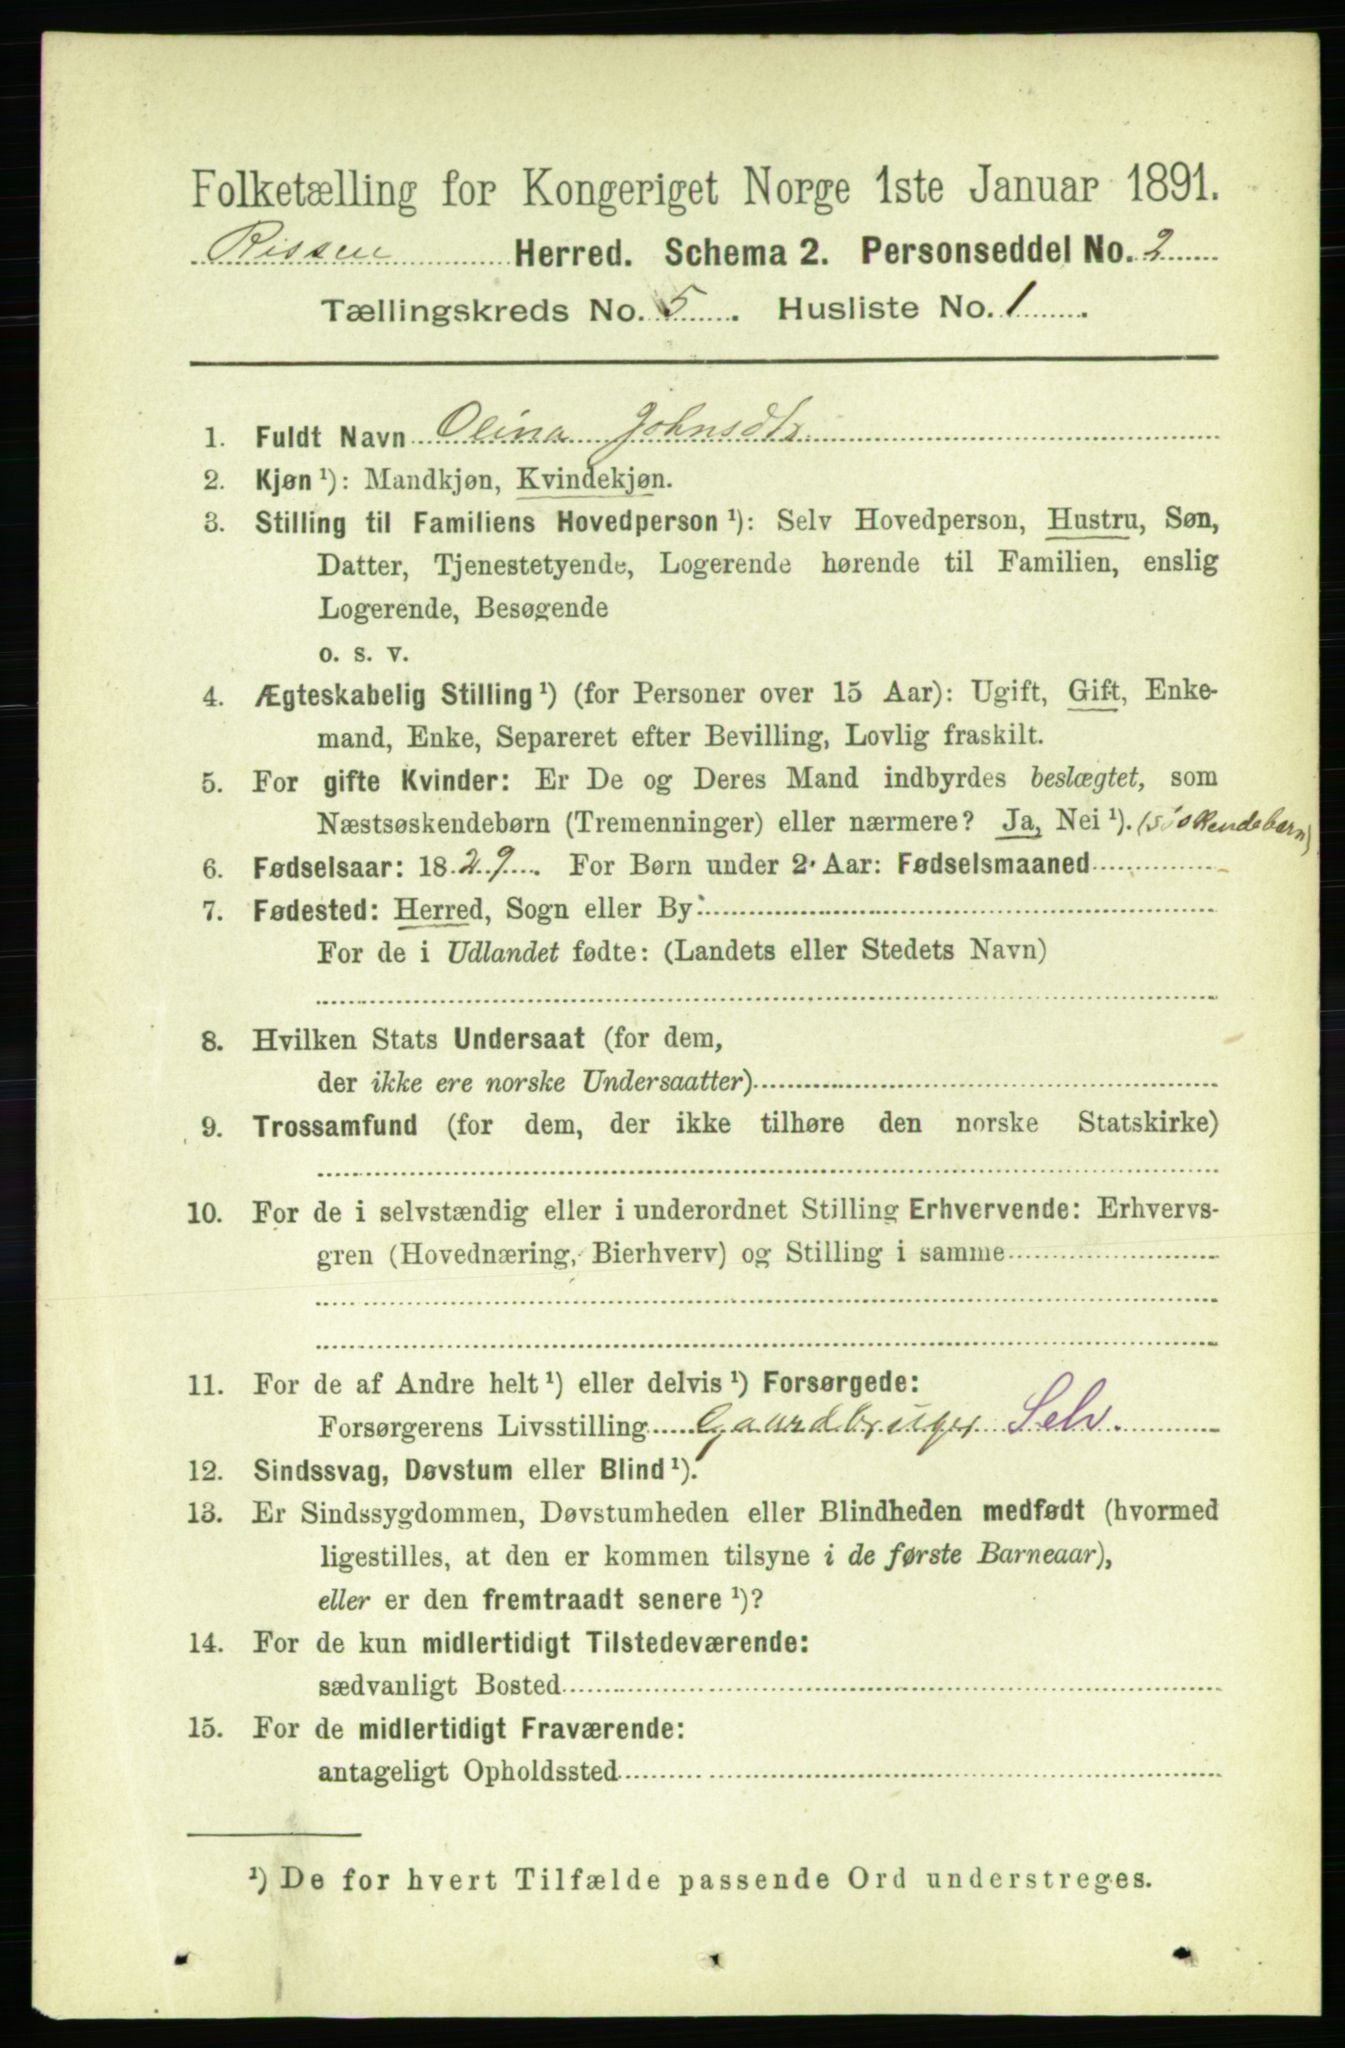 Folketælling for Kongeriget Norge 1ste Januar 1891.
Rissen Herred. Schema 2. Personseddel No. 2
Tællingskreds No. 5. Husliste No. 1.
1. Fuldt Navn Olina Johnsdtr.
2. Kjøn ¹): Mandkjøn, Kvindekjøn.
3. Stilling til Familiens Hovedperson ¹): Selv Hovedperson, Hustru, Søn,
Datter, Tjenestetyende, Logerende hørende til Familien, enslig
Logerende, Besøgende
o. s. v.
4. Ægteskabelig Stilling ¹) (for Personer over 15 Aar): Ugift, Gift, Enke-
mand, Enke, Separeret efter Bevilling, Lovlig fraskilt.
5. For gifte Kvinder: Er De og Deres Mand indbyrdes beslægtet, som
Næstsøskendebørn (Tremenninger) eller nærmere? Ja, Nei ¹). (Søskendebørn)
6. Fødselsaar: 1829. For Børn under 2 Aar: Fødselsmaaned
7. Fødested: Herred, Sogn eller By:
For de i Udlandet fødte: (Landets eller Stedets Navn)
8. Hvilken Stats Undersaat (for dem,
der ikke ere norske Undersaatter)
9. Trossamfund (for dem, der ikke tilhøre den norske Statskirke)
10. For de i selvstændig eller i underordnet Stilling Erhvervende: Erhvervs-
gren (Hovednæring, Bierhverv) og Stilling i samme
11. For de af Andre helt ¹) eller delvis ¹) Forsørgede:
Forsørgerens Livsstilling Gaardbruger Selv.
12. Sindssvag, Døvstum eller Blind ¹).
13. Er Sindssygdommen, Døvstumheden eller Blindheden medfødt (hvormed
ligestilles, at den er kommen tilsyne i de første Barneaar),
eller er den fremtraadt senere ¹)?
14. For de kun midlertidigt Tilstedeværende:
sædvanligt Bosted
15. For de midlertidigt Fraværende:
antageligt Opholdssted
¹) De for hvert Tilfælde passende Ord understreges.